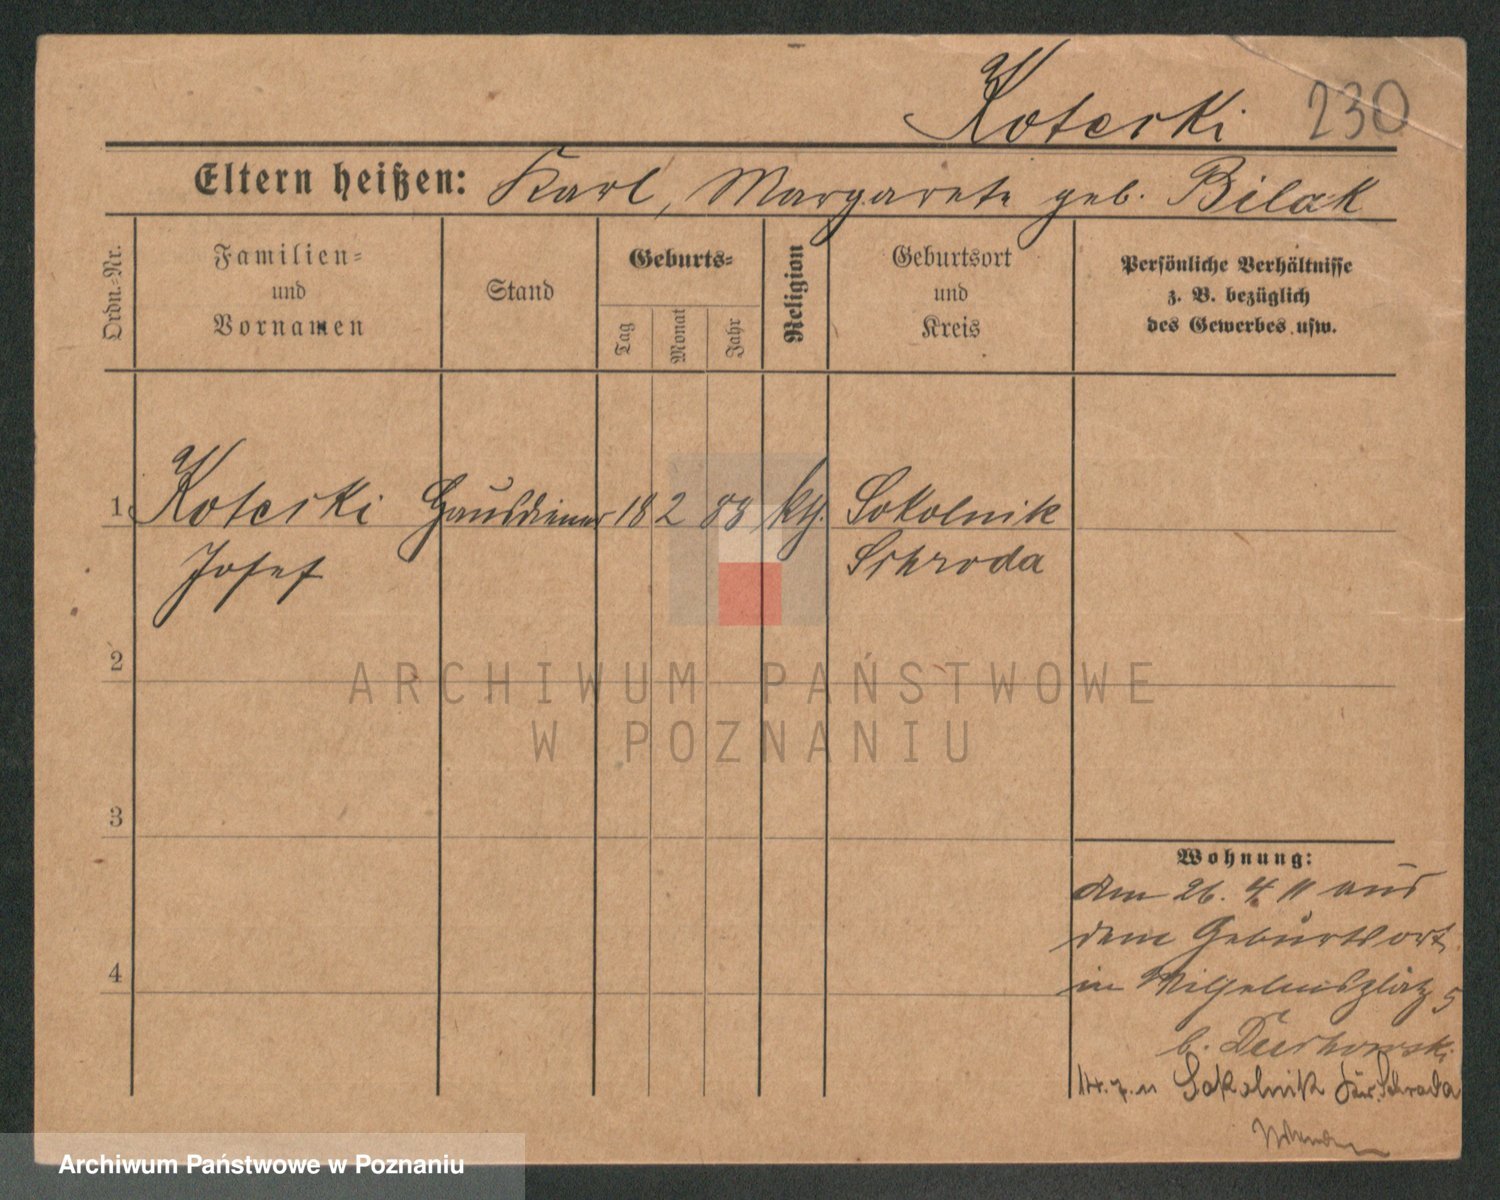 Koterski 230
Eltern heißen: Karl, Margarete geb. Bilak
Ordn.-Nr.
Familien-
und
Vornamen
Stand
Geburts-
Tag
Monat
Jahr
Religion
Geburtsort
und
Kreis
Persönliche Verhältnisse
z. B. bezüglich
des Gewerbes usw.
1 Koterski Hausdiener 18 2 83 kth. Sokolnik
Josef Schroda
2
3
4
Wohnung:
den 26. 4 11 aus
dem Geburtsort
in Wilhelmsplatz 5
b.
Sokolnik Schroda
ARCHIWUM PAŃSTWOWE
W POZNANIU
Archiwum Państwowe w Poznaniu